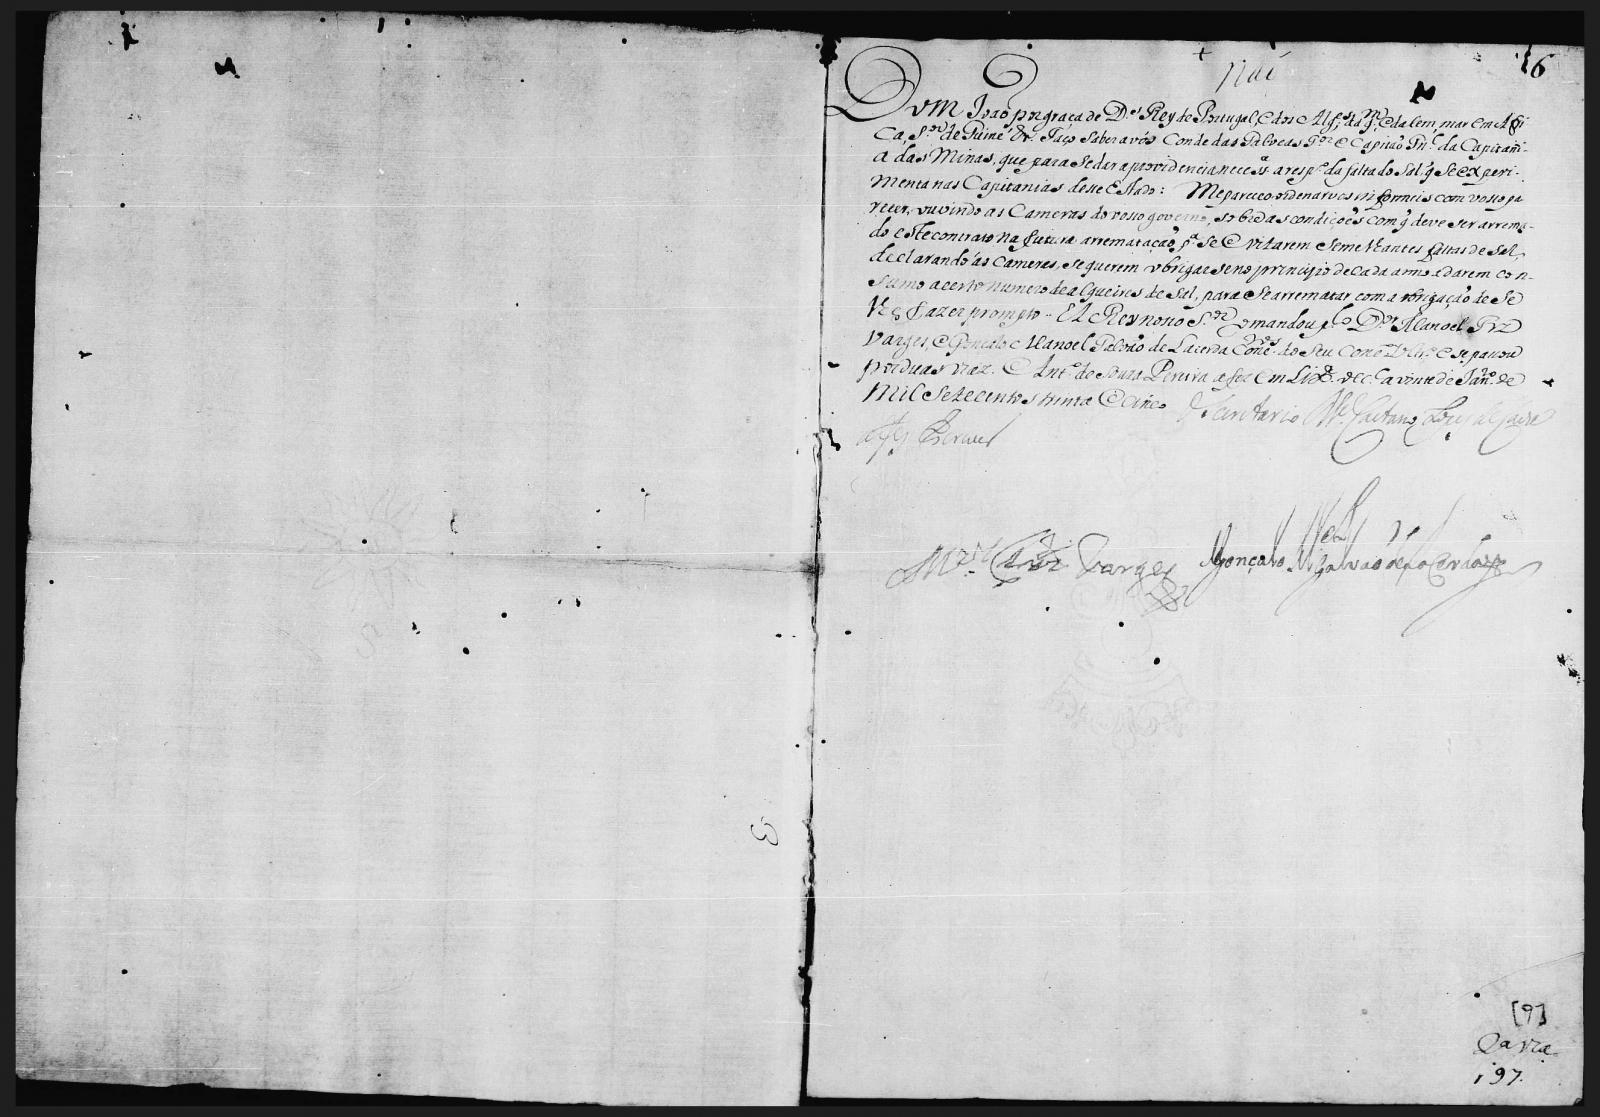 16
Dom João por graça de D.s Rey de Portugal, e dos Alg.es, daq.m, e dalem, mar em Afri
ca, S.or de Guiné &c. Faço saber a vós Conde das Galveas G.or e Capitaõ Gn.l da Capitañi-
a das Minas, que para se dar a providencia necess.a a resp.to da falta do Sal, q se experi-
menta nas Capitanias desse Estado: Me pareceo ordenarvos informeis com vosso pa
recer, ouvindo as Cameras do vosso governo, sobre as condiçoẽs com q deve ser arrema-
do este contrato na futura arremataçaõ p.a se evitarem semelhantes faltas de Sal,
declarando as Cameras, se querem obrigarse no principio de cada anno a darem con-
sumo a certo numero de alqueires de Sal, para se arrematar com a obrigaçaõ de se
lhes fazer prompto. El Rey nosso S.or o mandou p.lo D.or Manoel Frz
Varges, e Gonçalo Manoel Galvaõ de Lacerda Cons.os do seu Cons.o Ultr.o e se passou
por duas vias. Ant.o de Souza Pereira a fez em Lix.a occ.l a vinte de Jan.ro de
mil setecentos trinta e cinco O Secretario M.el Caetano Lopes de Lavre
a fez escrever
M.el Frz Varges Gonçalo M.el Galvaõ de Lacerda
3
[9]
2a via
197